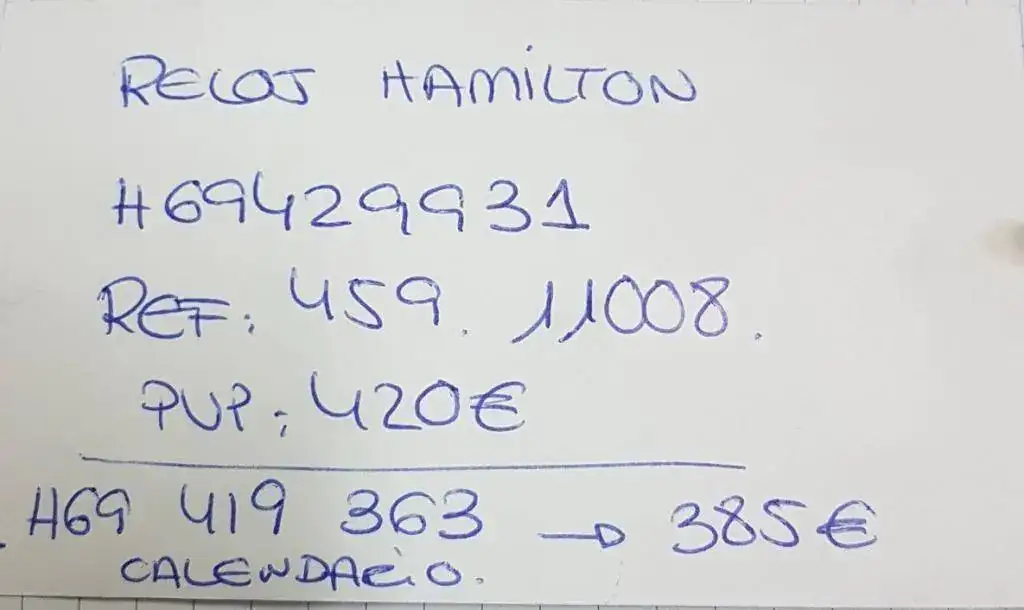 RELOJ HAMILTON
H69429931
REF: 459. 11008.
PVP: 420€
H69 419 363 → 385€
CALENDARIO.